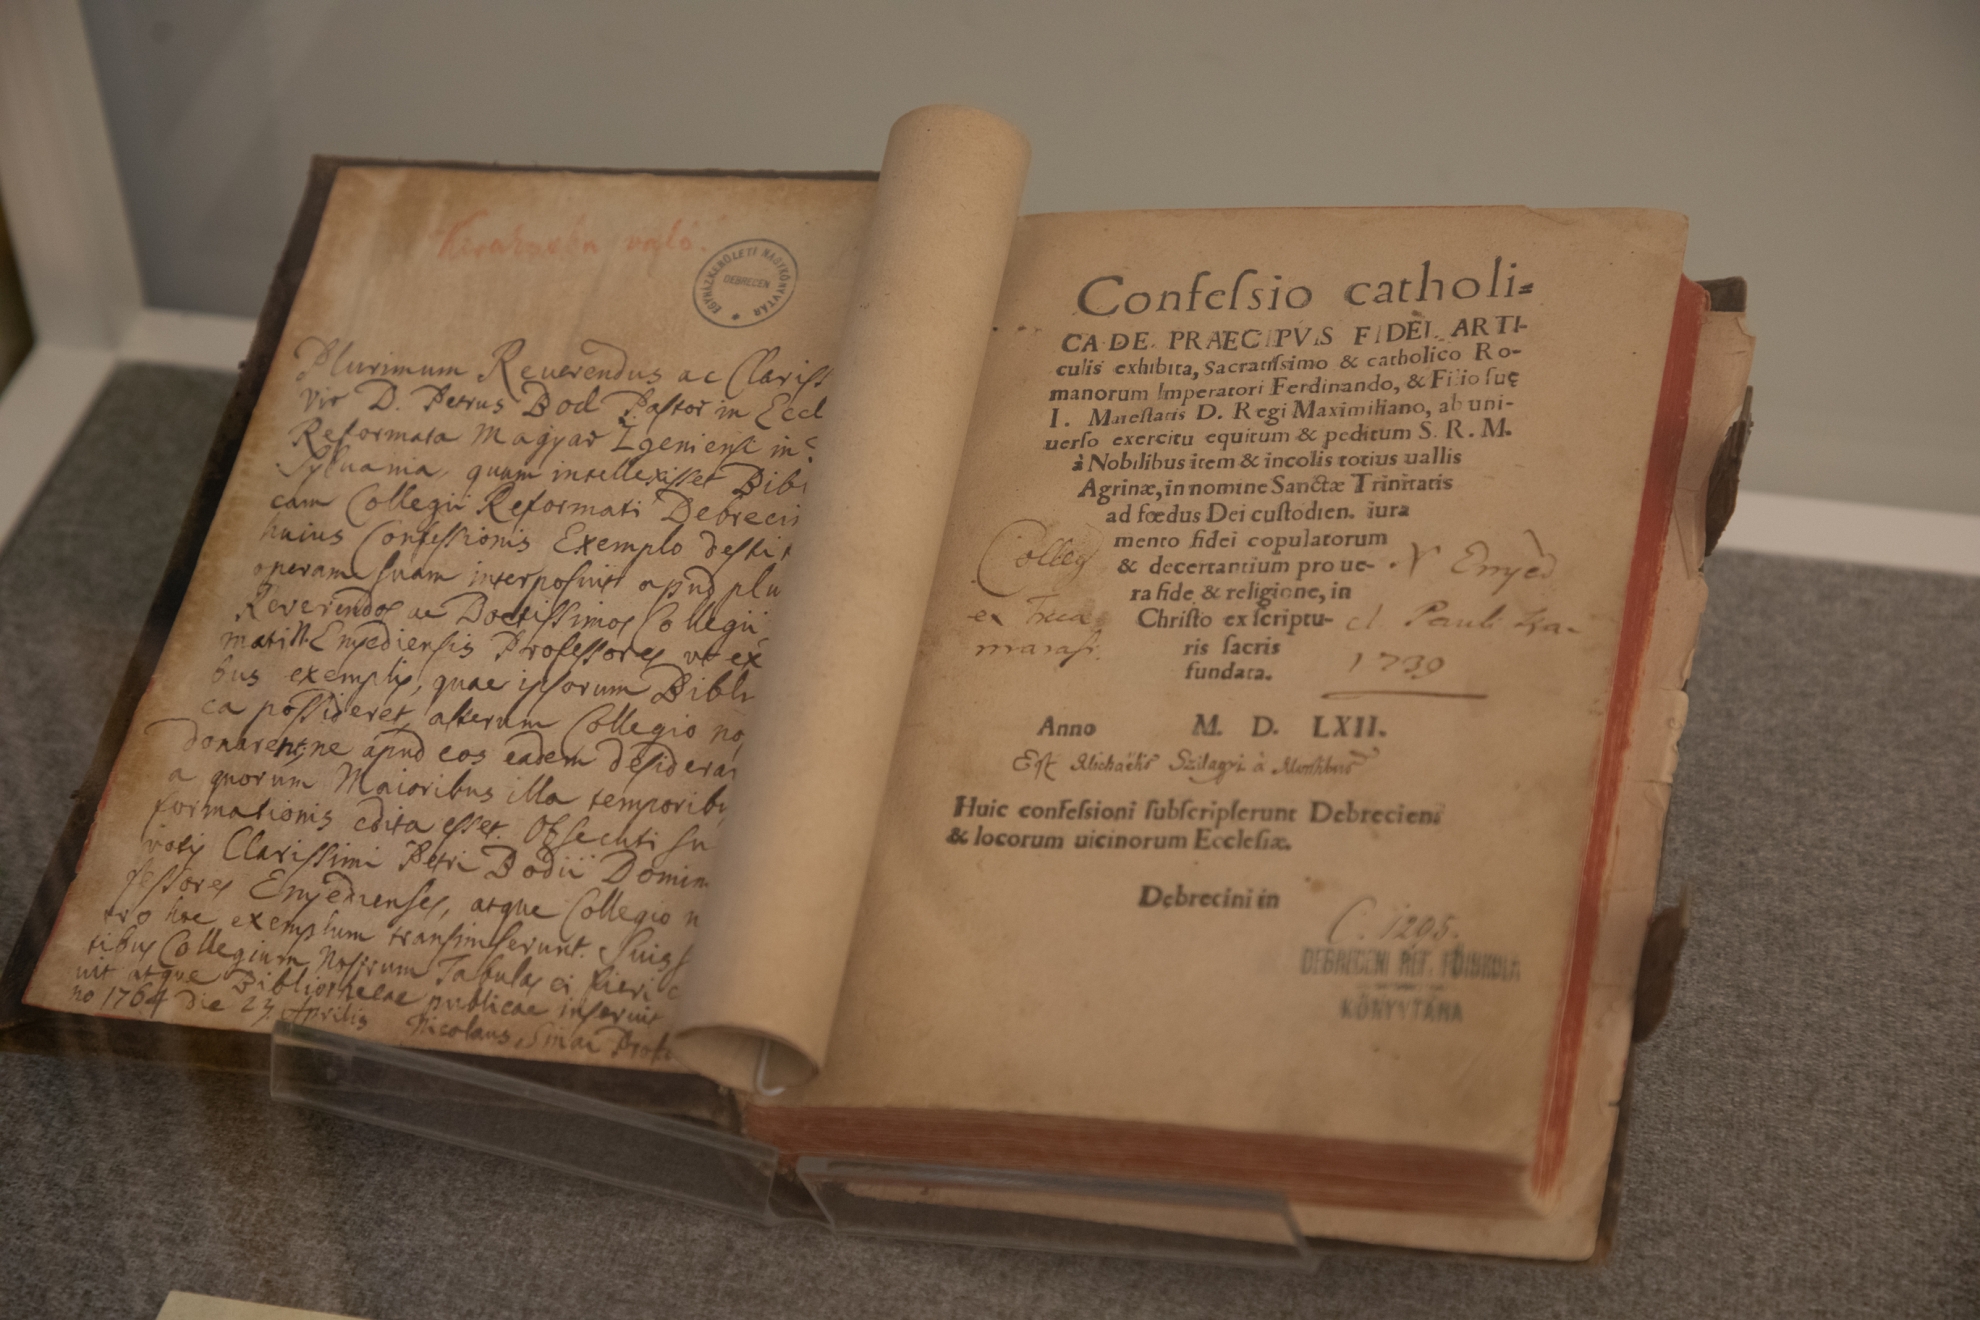 EGYHÁZKERÜLETI NAGYKÖNYVTÁR
DEBRECEN
Plurimum Reverendus ac Clariss
Vir D. Petrus Bod Pastor in Eccl
Reformata Magyar Igeniensi in
Sylvania, quum intellexisset Bibl
cam Collegii Reformati Debrecin
huius Confessionis Exemplo desti
operam suam interposuit apud plu
Reverendos ac Doctissimos Collegii
Enyediensis Professores, ut ex
bus exemplis, quae ipsorum Bibli
ca possideret, alterum Collegio no
donarent, ne apud eos eadem desiderar
a quorum Maioribus illa temporibu
formationis edita esset. Obsecuti su
votis Clarissimi Petri Bodii Domin
fessores Enyedienses, atque Collegio n
tro hoc exemplum transmiserunt. Suis
tibus Collegium Nostrum Tabulas ei fieri c
uit atque Bibliothecae publicae inseruit
no 1764 die 23 Aprilis Nicolaus Sinai Profe
Confeſsio catholi=
CA DE PRAECIPVIS FIDEI ARTI-
culis exhibita, Sacratiſsimo & catholico Ro-
manorum Imperatori Ferdinando, & Filio ſuę
I. Maieſtatis D. Regi Maximiliano, ab uni-
uerſo exercitu equitum & peditum S. R. M.
à Nobilibus item & incolis totius uallis
Agrinæ, in nomine Sanctæ Trinitatis
ad fœdus Dei cuſtodien. iura
mento fidei copulatorum
& decertantium pro ue-
ra fide & religione, in
Chriſto ex ſcriptu-
ris ſacris
fundata.
Colleg N Enyed
1739
Anno M. D. LXII.
Est Michaëlis Szilagyi à
Huic confeſsioni ſubſcripſerunt Debrecienſ
& locorum uicinorum Eccleſiæ.
Debrecini in
C. 1205.
DEBRECENI REF. FŐISKOLA
KÖNYVTÁRA